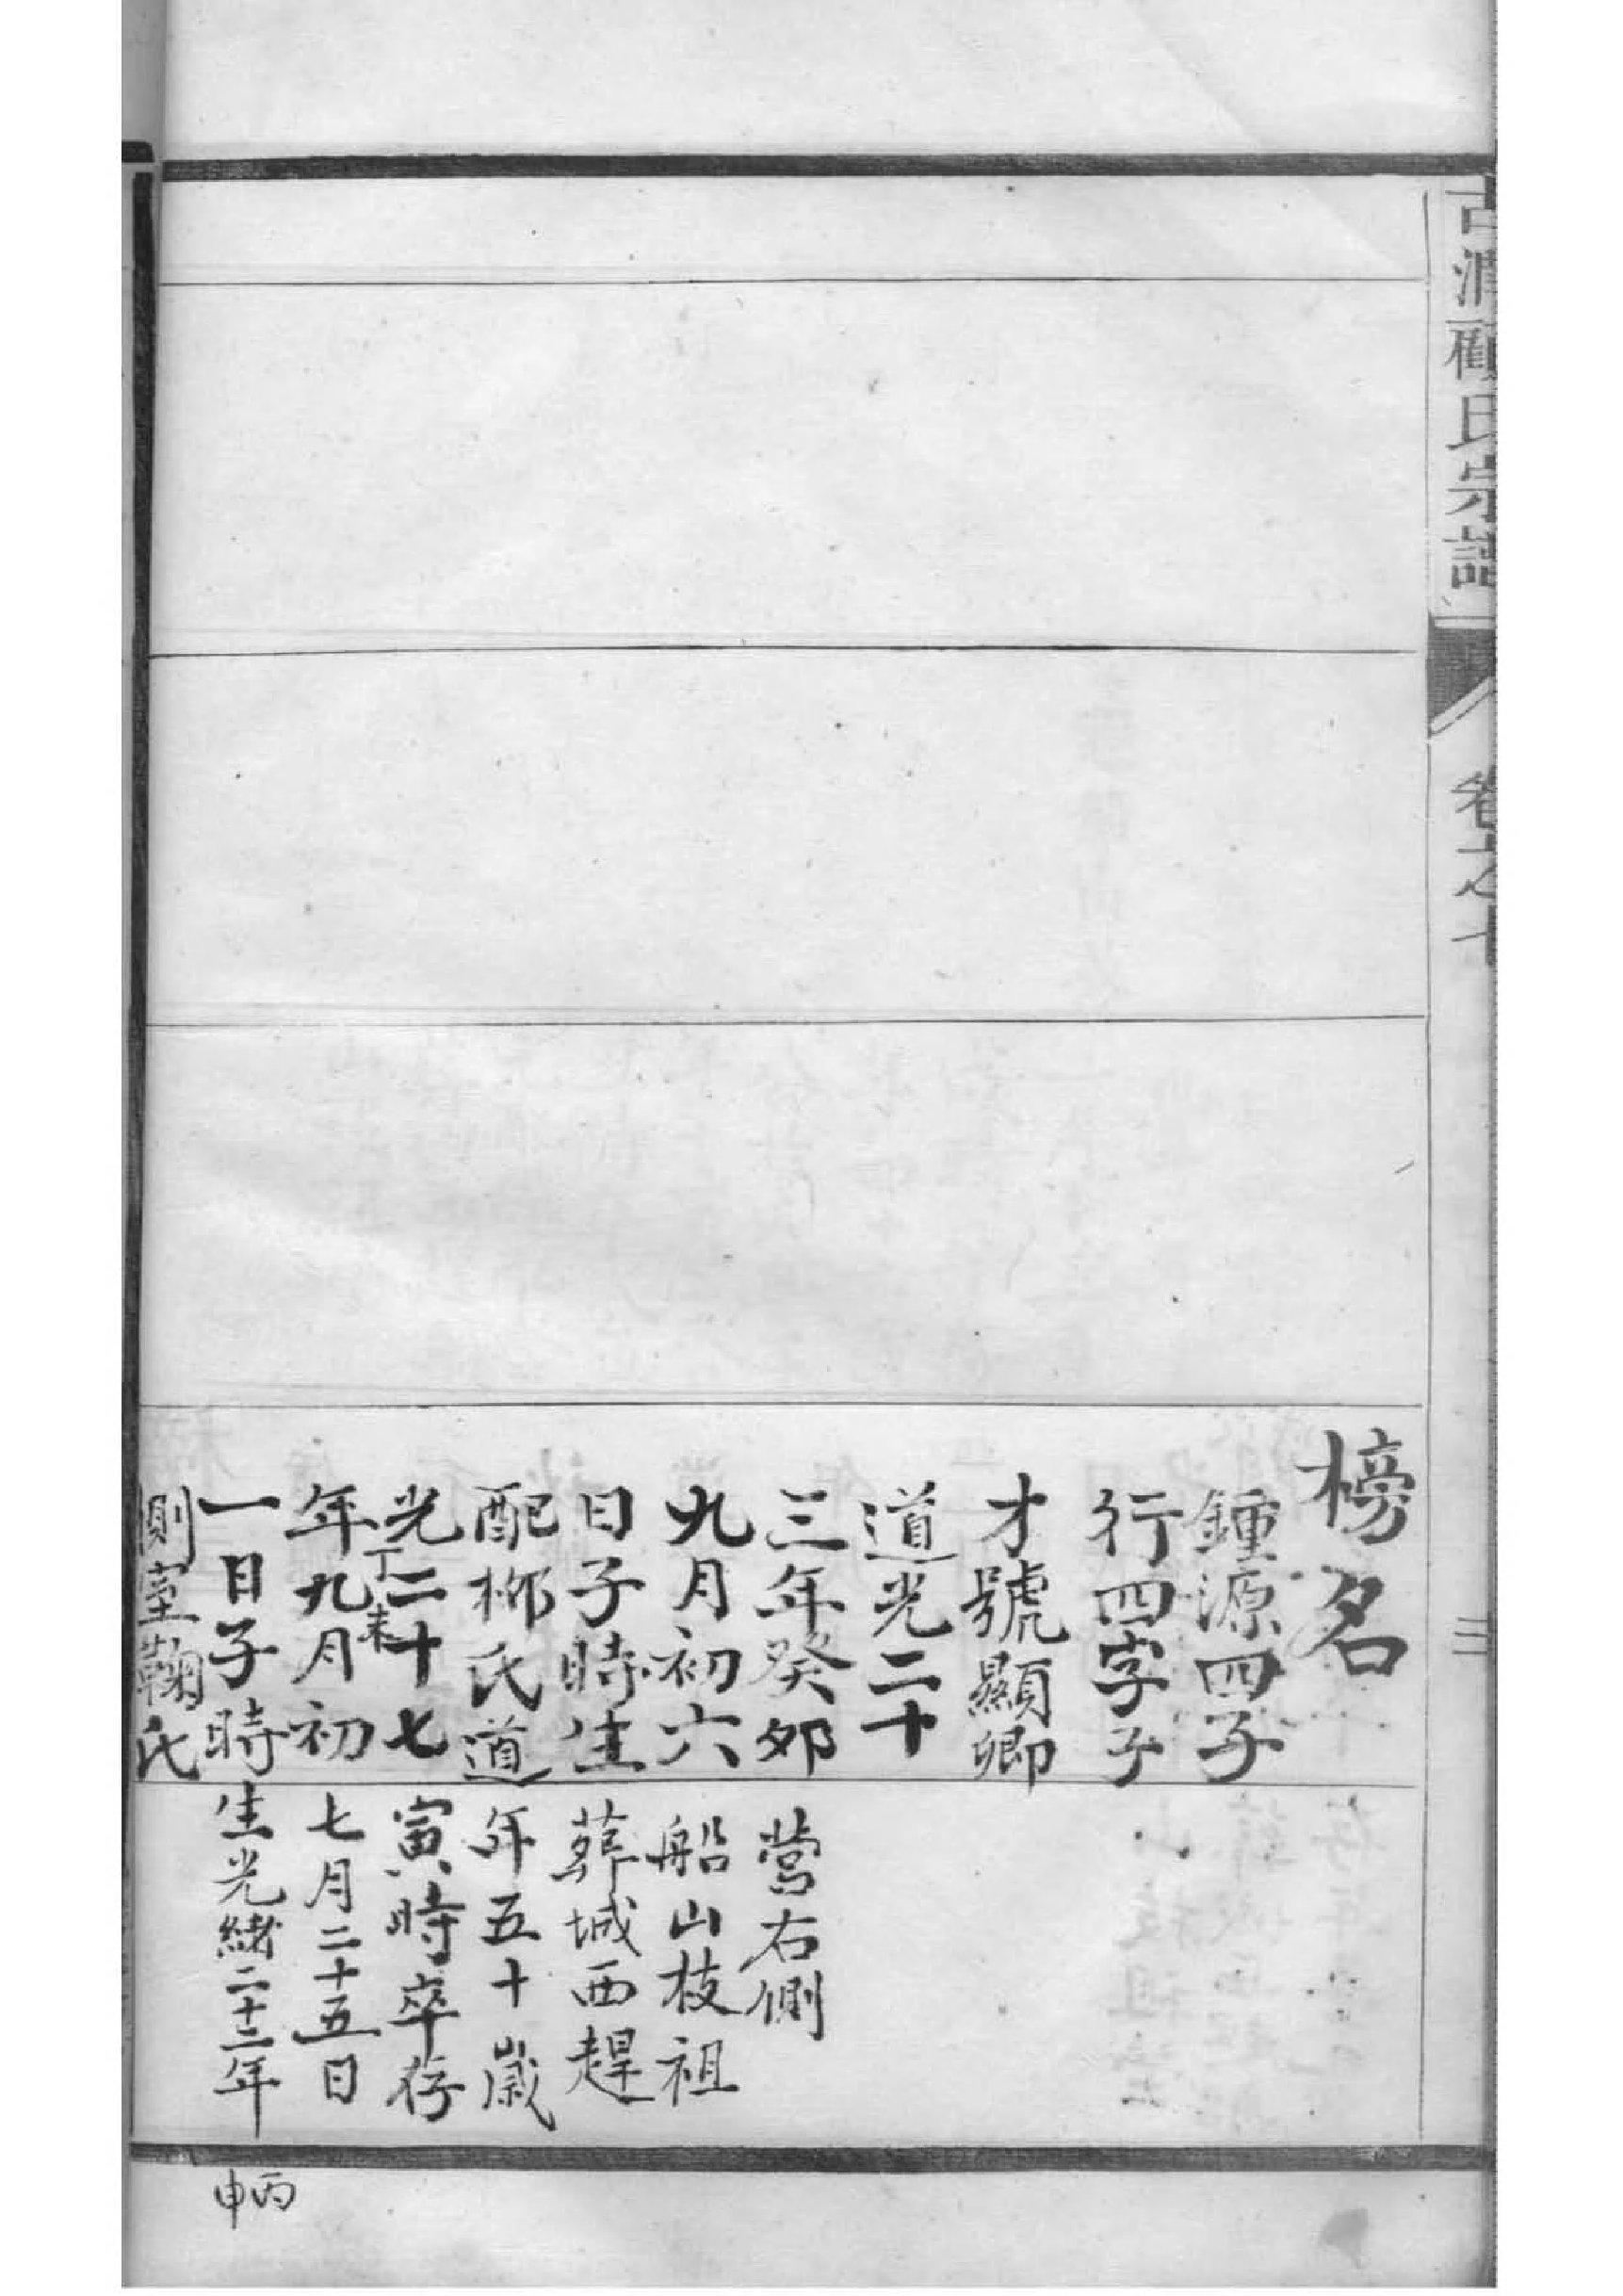 古潤顧氏宗譜
卷之七
三
榜名
鍾源四子
行四字子
才號顯卿
道光二十
三年癸夘
九月初六
日子時生
配柳氏道
光二十七
丁未
年九月初
一日子時生光緒二十二年
丙申
七月二十五日
寅時卒存
年五十歲
葬城西趕
船山枝祖
營右側
側室鞠氏